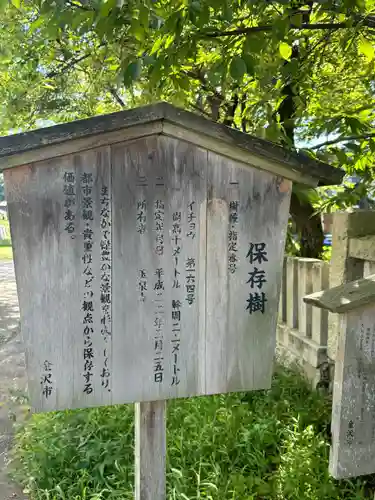 保存樹
一 樹種・指定番号
イチョウ 第一六四号
樹高十メートル 幹周二・二メートル
一 指定年月日 平成二二年二月二五日
一 所有者 玉泉寺
まちなかで緑豊かな景観を形づくしており、
都市景観・貴重種などの観点から保存する
価値がある。
金沢市
金沢市